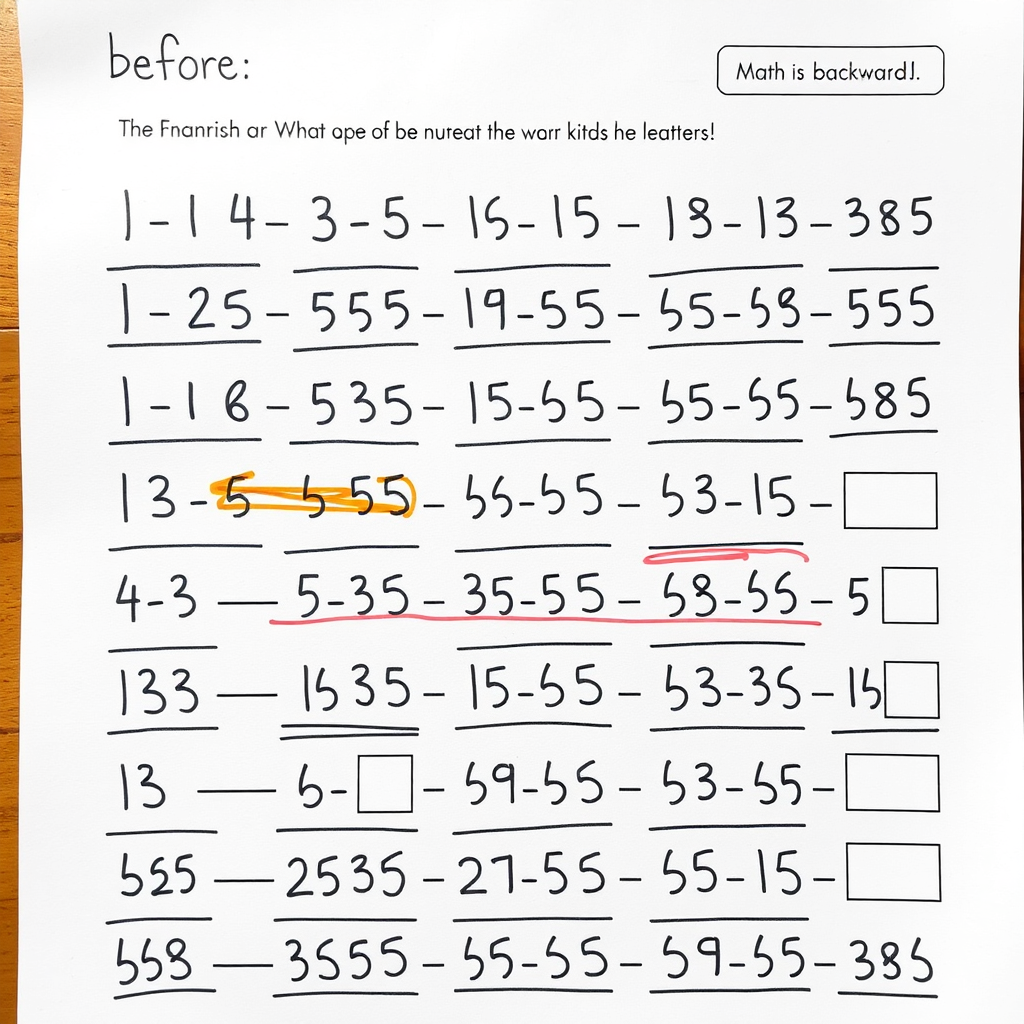 before:
Math is backward!.
The Fnanrish ar What ape of be nureat the worr kitds he leatters!
1 - 1 4 - 3 - 5 - 15 - 15 - 18 - 13 - 385
1 - 25 - 555 - 19 - 55 - 55 - 58 - 555
1 - 1 6 - 535 - 15 - 55 - 55 - 55 - 585
13 - 5 5 55 - 55 - 55 - 53 - 15 -
4 - 3 — 5 - 35 - 35 - 55 - 58 - 55 - 5
133 — 1535 - 15 - 55 - 53 - 35 - 15
13 — 6 - - 59 - 55 - 53 - 55 -
555 — 2535 - 27 - 55 - 55 - 15 -
558 — 3555 - 55 - 55 - 59 - 55 - 385